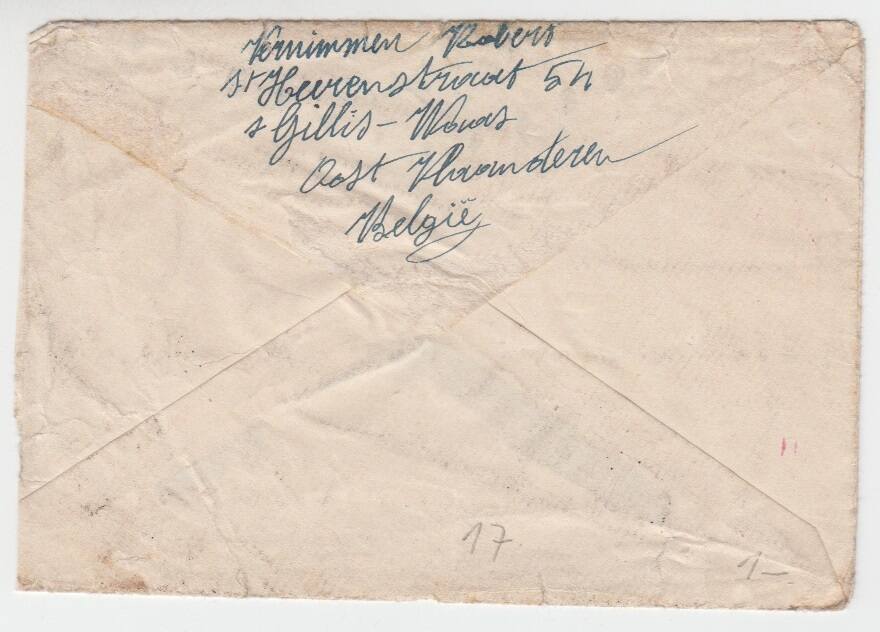 Vernimmen Robert
St Heerenstraat 54
s Gillis - Waas
Oost Vlaanderen
België
17
1-